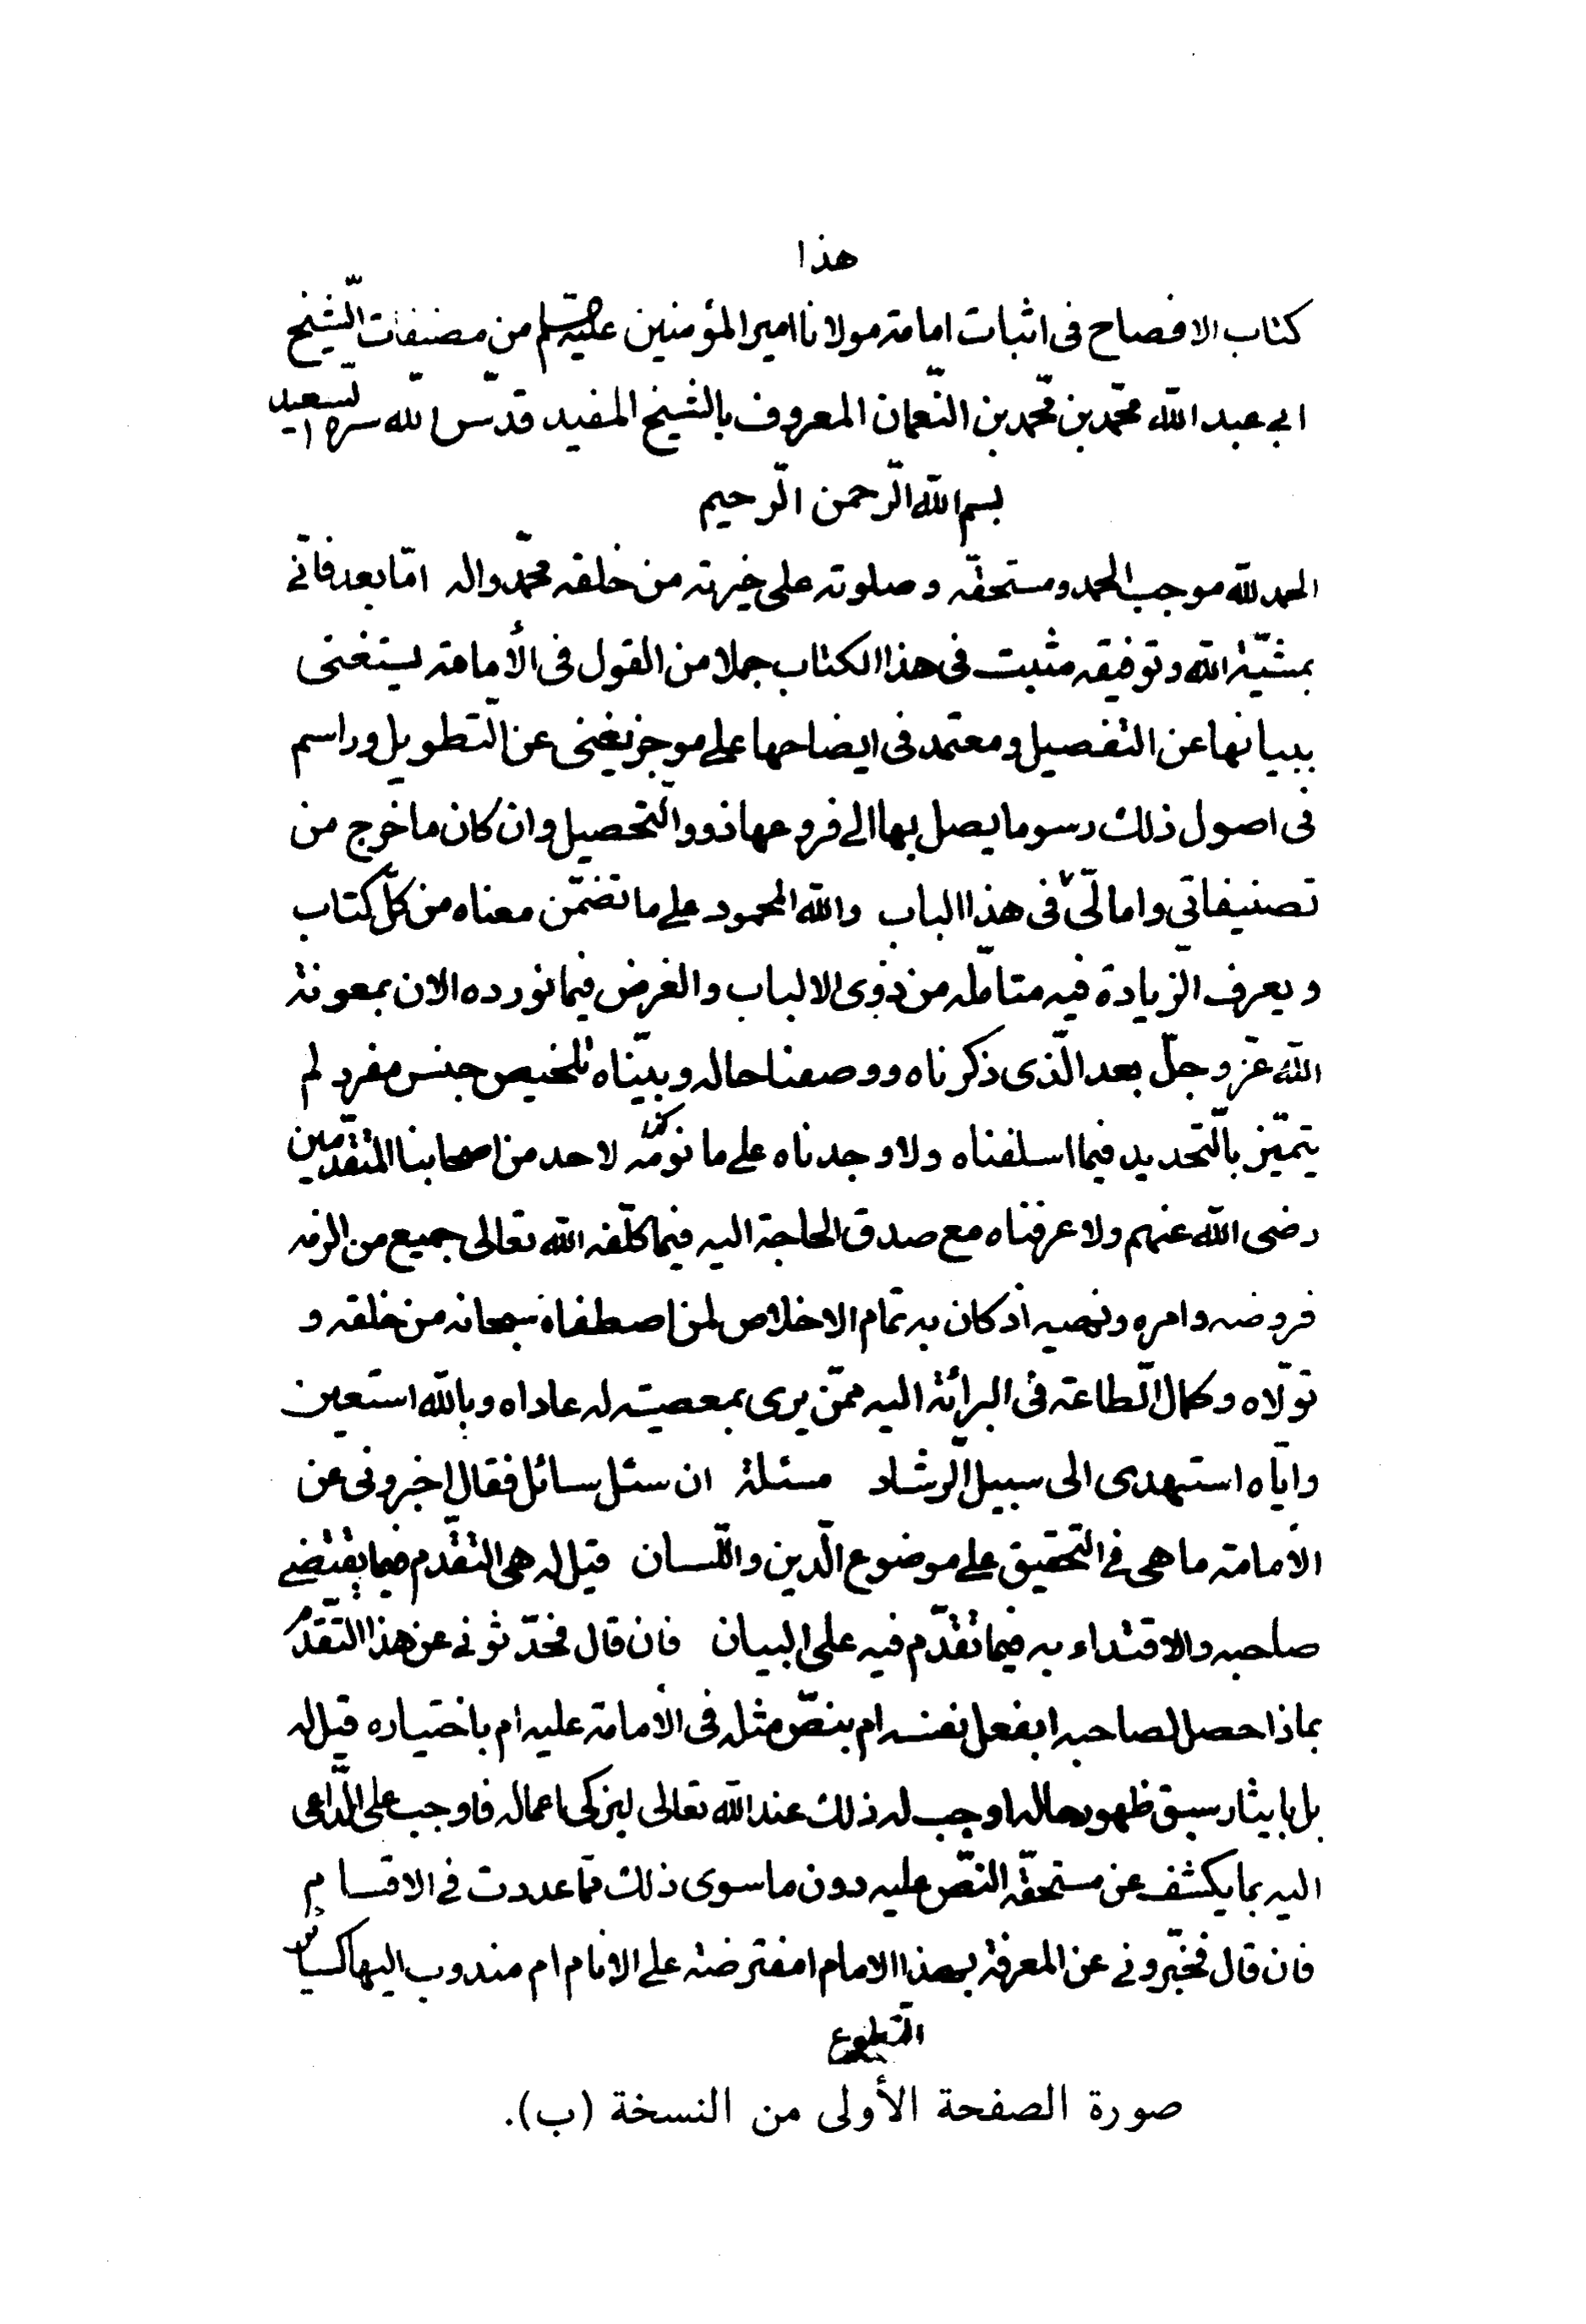 هذا
كتاب الافصاح فى اثبات امامة مولانا امير المؤمنين عليه من مصنفات الشيخ
ابى عبد الله محمد بن محمد بن النعمان المعروف بالشيخ المفيد قدّس الله سره السعيد
بسم الله الرّحمن الرّحيم
الحمد لله موجب الحمد ومستحقّه وصلوته على خيرته من خلقه محمّد واله امّا بعد فانّى
بمشيّة الله وتوفيقه مثبت فى هذا الكتاب جملا من القول فى الأمامة يستغنى
ببيانها عن التفصيل ومعتمد فى ايضاحها على موجز يغنى عن التطويل وراسم
فى اصول ذلك رسوما يصل بها الى فروعها ذووا التحصيل وان كان ما خرج من
تصنيفاتى وامالىّ فى هذا الباب والله المحمود على ما تضمّن معناه من كلّ كتاب
ويعرف الزيادة فيه متامّله من ذوى الالباب والغرض فيما نورده الان بمعونة
الله عزّ وجلّ بعد الّذى ذكرناه ووصفنا حاله وبيّناه تلخيص جنس مفرد لم
يتميّز بالتّحديد فيما اسلفناه ولا وجدناه على ما نومّه لاحد من اصحابنا المتقدّمين
رضى الله عنهم ولا عرفناه مع صدق الحاجة اليه فيما كلّفه الله تعالى جميع من الزمه
فروضه وامره ونهيه اذ كان به تمام الاخلاص لمن اصطفاه سبحانه من خلقه و
تولّاه وكمال الطاعة فى البرائة اليه ممّن يرى بمعصيته له عاداه وبالله استعين
وايّاه استهدى الى سبيل الرّشاد مسئلة ان سئل سائل فقال اخبرونى عن
الأمامة ما هى فى التحقيق على موضوع الدين واللّسان قيل له هى التقدّم فيما يقتضى
صاحبه والاقتداء به فيما تقدّم فيه على البيان فان قال فحدّثونى عن هذا التقدّم
بماذا حصل لصاحبه ابفعل نفسه ام بنصّ مثله فى الأمامة عليه ام باختياره قيل له
بل بايثار سبق ظهور حاله اوجب له ذلك عند الله تعالى ليزكى اعماله فاوجب على الدّاعى
اليه بما يكشف عن مستحقّه النصّ عليه دون ما سوى ذلك ممّا عددت فى الاقسام
فان قال فخبّرونى عن المعرفة بهذا الامام امفترضة على الانام ام مندوب اليها كسائر
التطوع
صورة الصفحة الأولى من النسخة (ب).